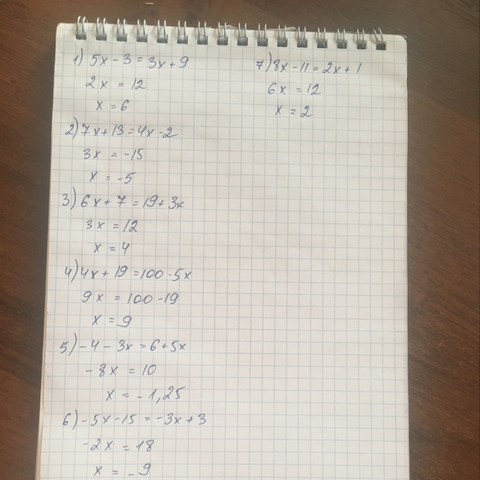 1) 5x - 3 = 3x + 9
2x = 12
x = 6
2) 7x + 13 = 4x - 2
3x = -15
x = -5
3) 6x + 7 = 19 + 3x
3x = 12
x = 4
4) 4x + 19 = 100 - 5x
9x = 100 - 19
x = 9
5) -4 - 3x = 6 + 5x
-8x = 10
x = -1,25
6) -5x - 15 = -3x + 3
-2x = 18
x = -9
7) 8x - 11 = 2x + 1
6x = 12
x = 2